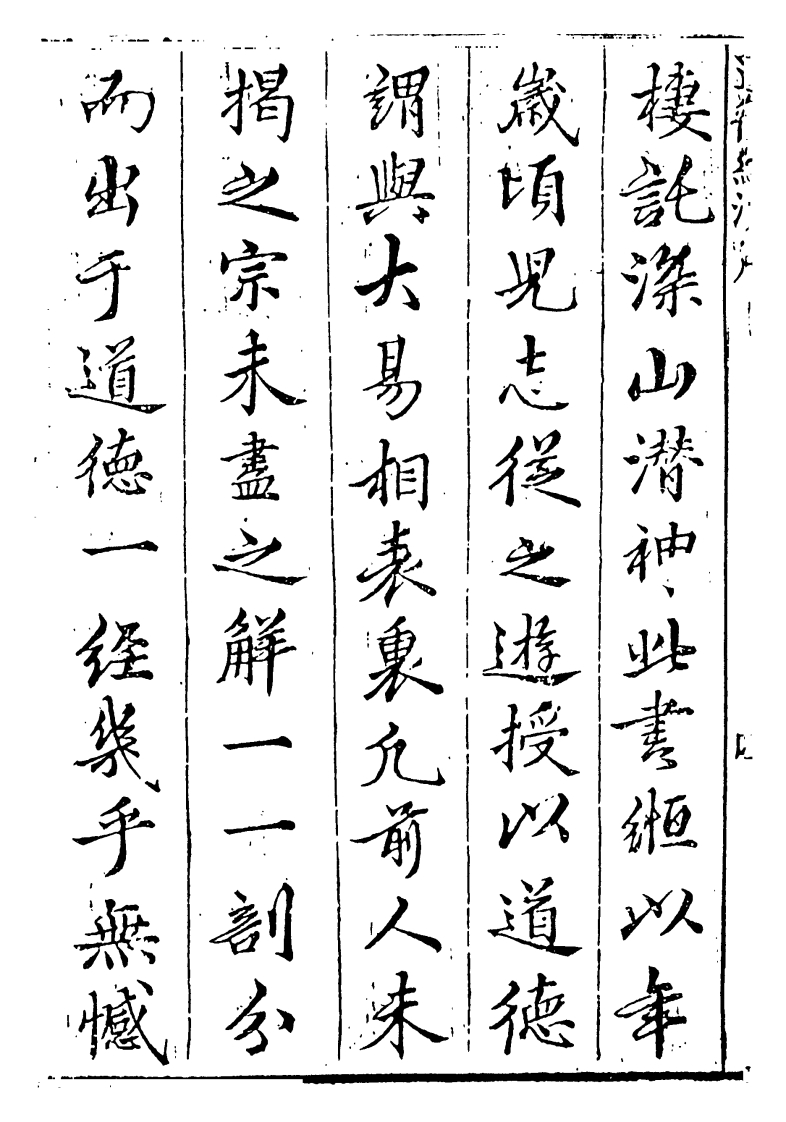 棲託深山潜神此書緪以年
歲頃兒志從之遊授以道德
謂與大易相表裏凡前人未
揭之宗未盡之解一一剖分
而出于道德一經幾乎無憾